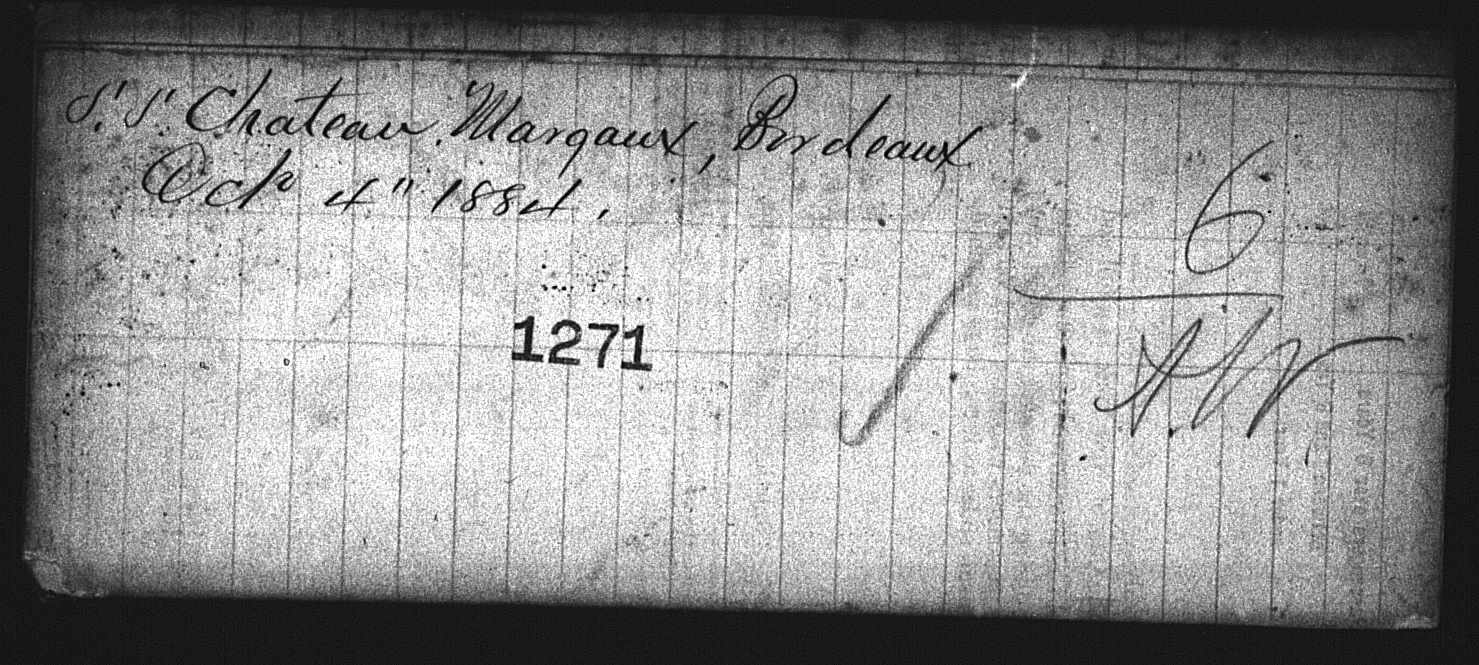 S. S. Chateau Margaux, Bordeaux
Oct 4" 1884.
6
1271